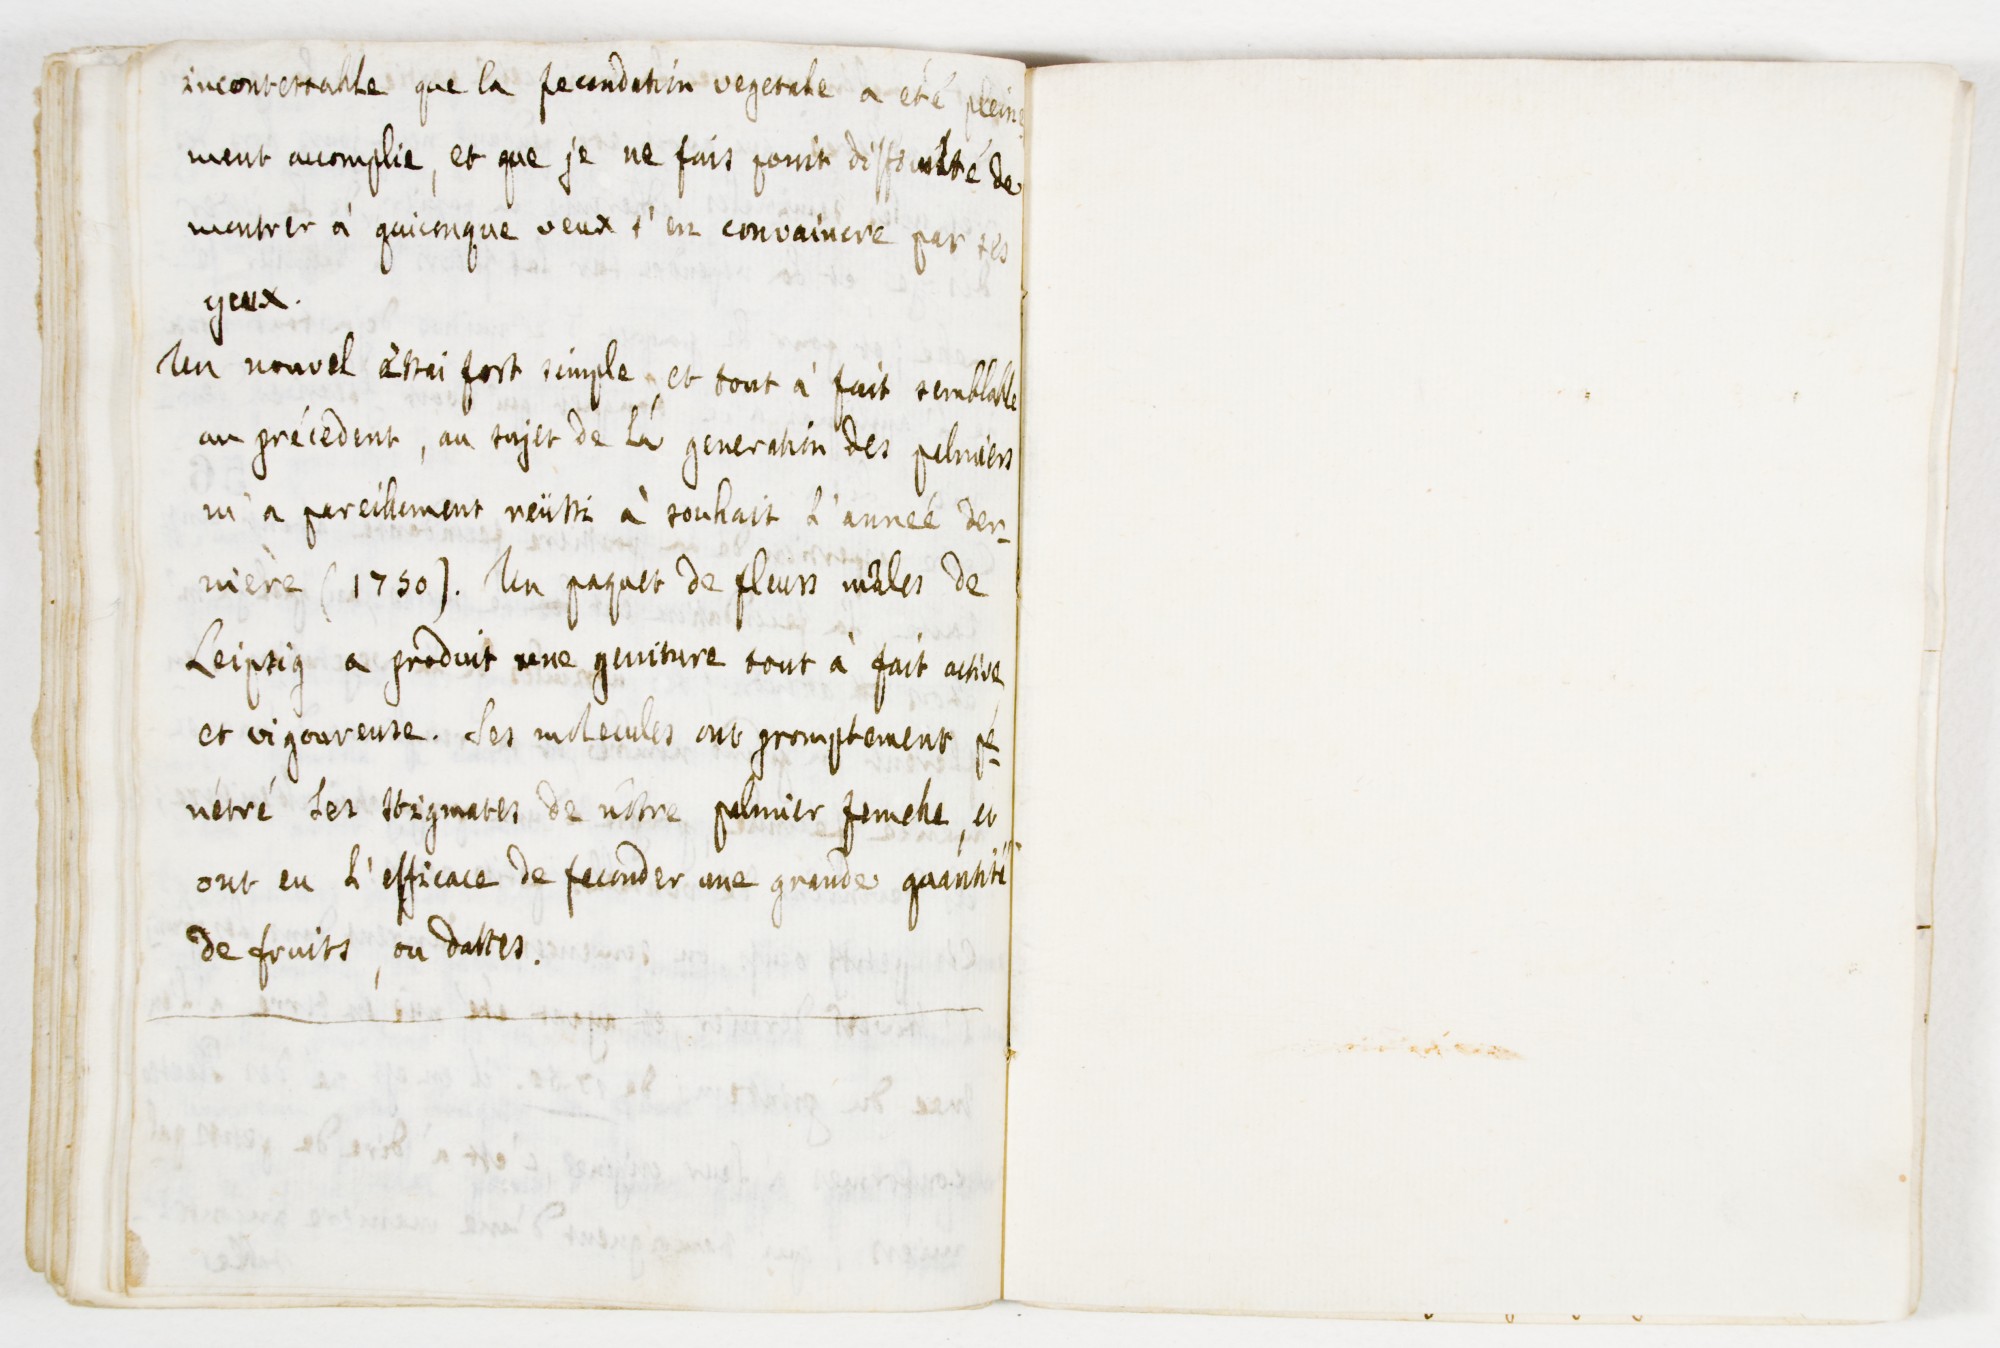 incontestable que la fecondation vegetale a eté pleine-
ment accomplie, et que je ne fais point difficulté de
montrer à quiconque veux s'en convaincre par ses
yeux.
Un nouvel essai fort simple, et tout à fait semblable
au précedent, au sujet de la generation des palmiers
m'a pareillement reüssi à souhait l'anneé der-
nière (1750). Un paquet de fleurs mâles de
Leipzig a produit une geniture tout à fait active
et vigoureuse. Ses molecules ont promptement pé-
nétré les stigmates de nôtre palmier femelle, et
ont eu l'efficace de feconder une grande quantité
de fruits, ou dattes.